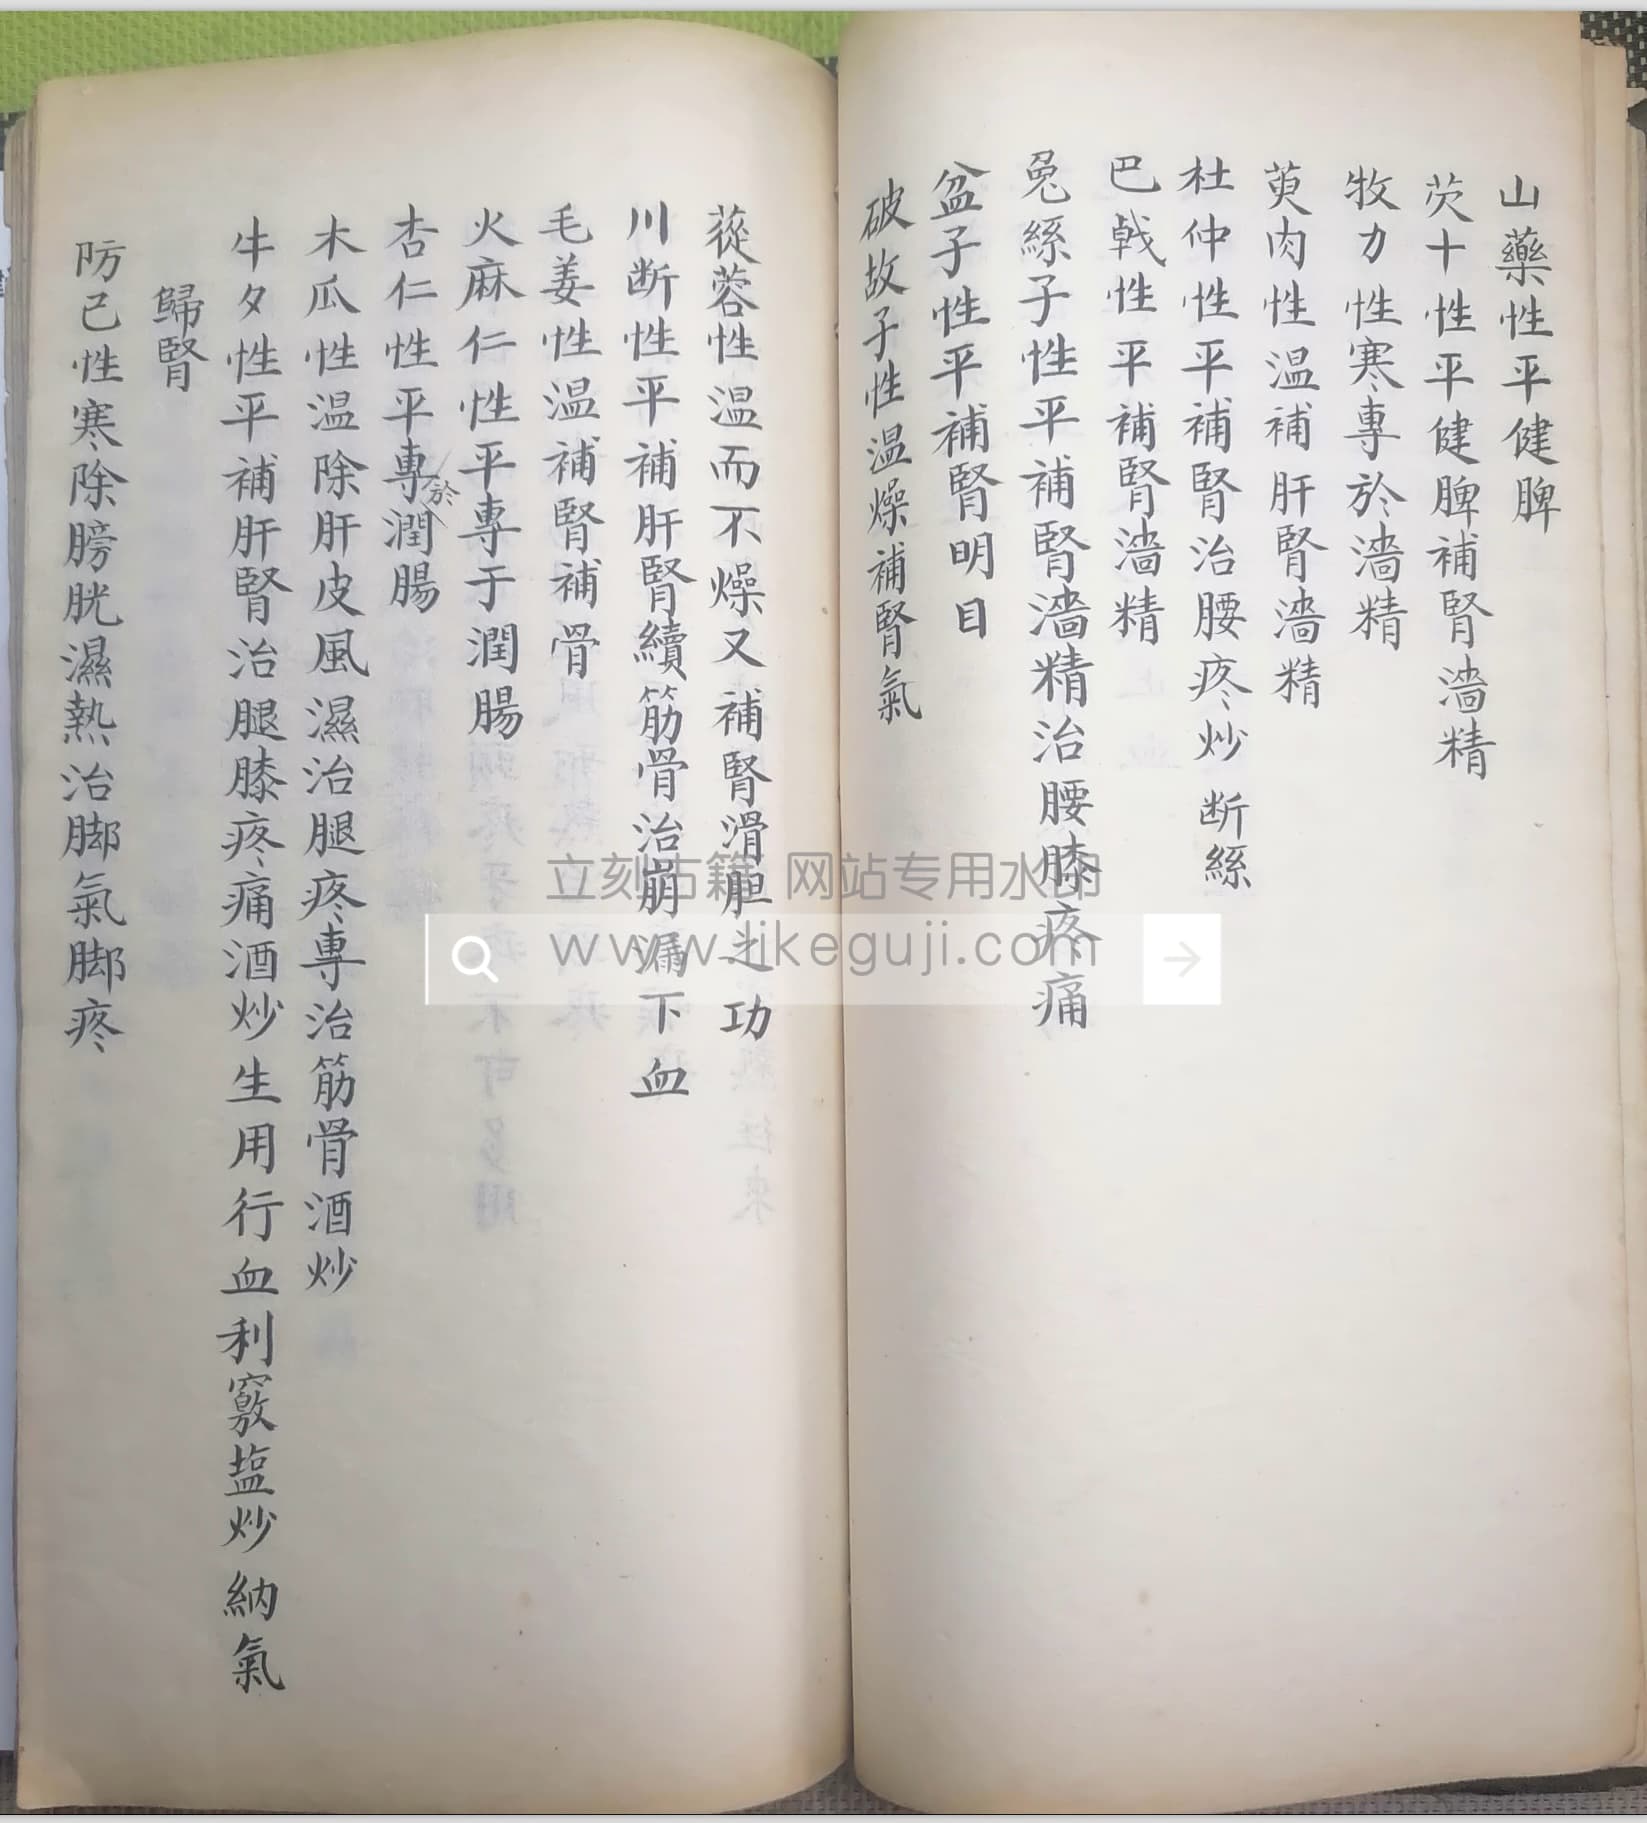 山藥性平健脾
芡十性平健脾補腎濇精
牧力性寒專於濇精
萸肉性溫補肝腎濇精
杜仲性平補腎治腰疼炒断絲
巴戟性平補腎濇精
兔絲子性平補腎濇精治腰膝疼痛
盆子性平補腎明目
破故子性溫燥補腎氣
蓯蓉性溫而不燥又補腎滑胆之功
川断性平補肝腎續筋骨治崩漏下血
毛姜性溫補腎補骨
火麻仁性平專于潤腸
杏仁性平專於潤腸
木瓜性溫除肝皮風濕治腿疼專治筋骨酒炒
牛夕性平補肝腎治腿膝疼痛酒炒生用行血利竅盐炒納氣
歸腎
防己性寒除膀胱濕熱治脚氣脚疼
立刻古籍 网站专用水印
www.likeguji.com